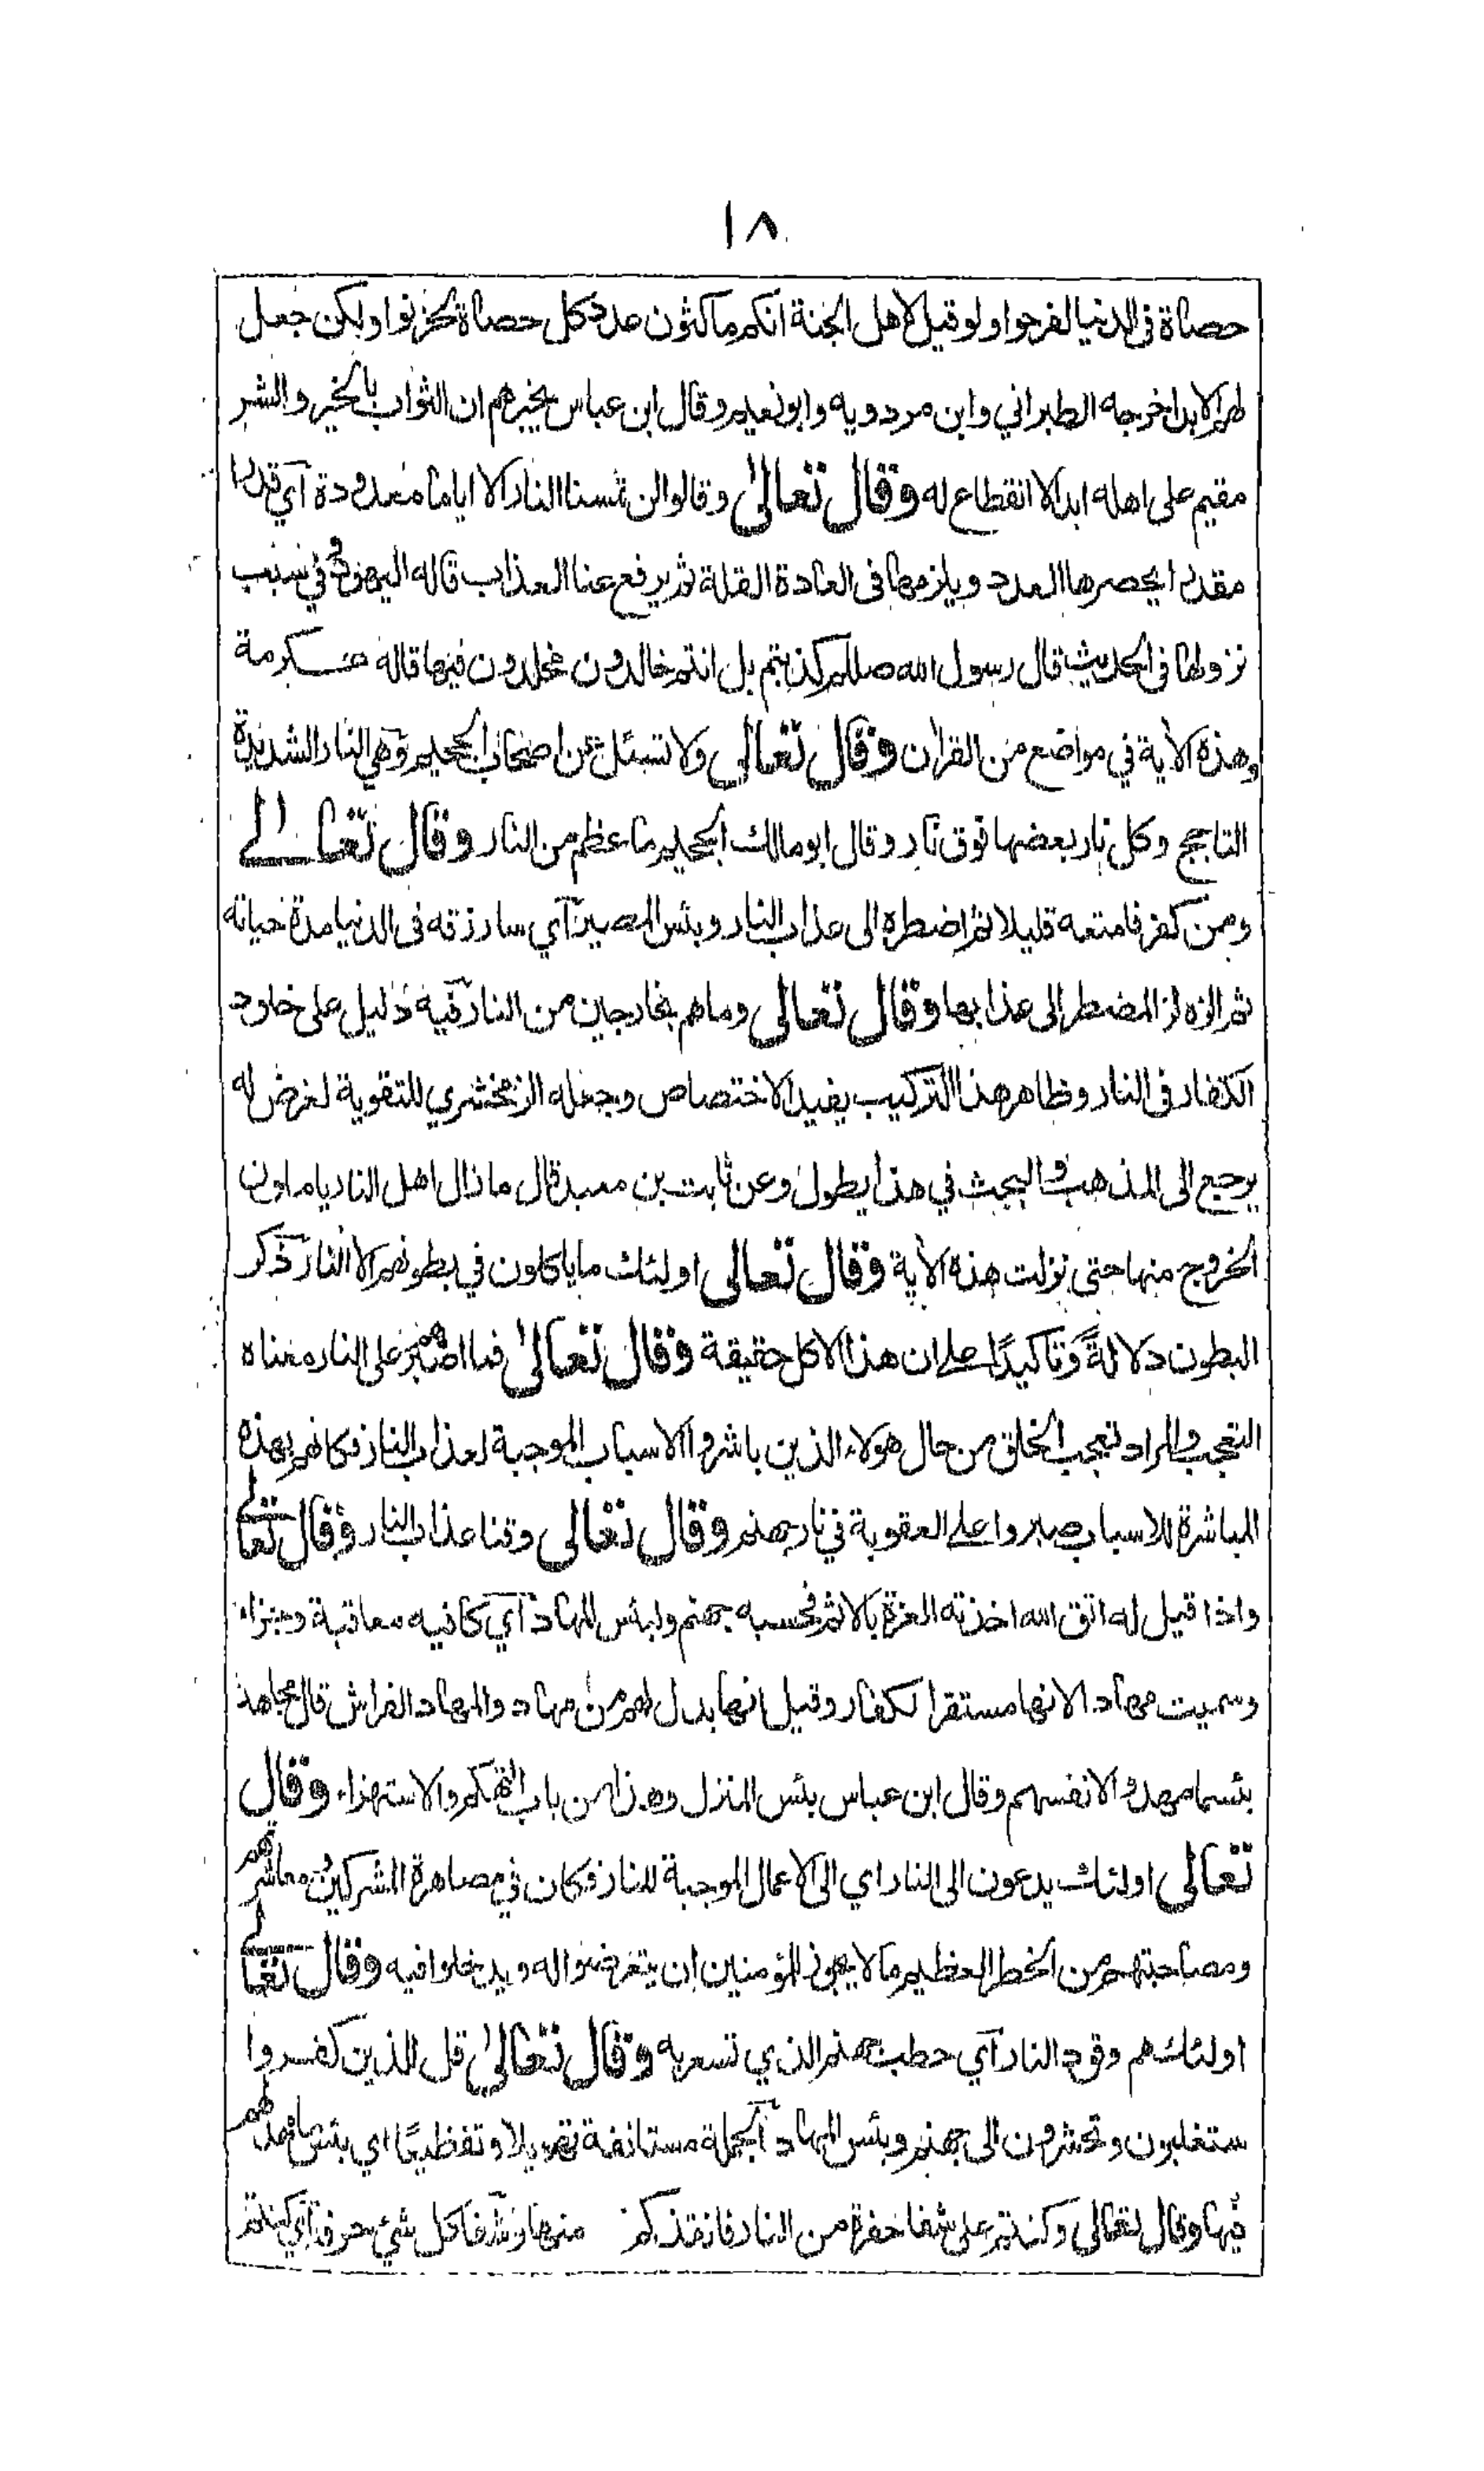 ١٨
حصاة في الدنيا لفرحوا ولو قيل لاهل الجنة انكم ماكثون عدد كل حصاة لحزنوا ولكن جعل
لهم الابد اخرجه الطبراني وابن مردويه وابونعيم وقال ابن عباس يخبرهم ان الثواب بالخير والشر
مقيم على اهله ابدا لا انقطاع له وقال تعالى وقالوا لن تمسنا النار الا اياما معدودة آي قدرا
مقدرا يحصرها العدد ويلزمها في العادة القلة ثم يرفع عنا العذاب قاله اليهود وفي سبب
نزولها في الحديث قال رسول الله صللم كذبتم بل انتم خالدون مخلدون فيها قاله عكرمة
وهذه الاية في مواضع من القران وقال تعالى ولا تسئل عن اصحاب الجحيم وهي النار الشديدة
التاجج وكل نار بعضها فوق نار وقال ابو مالك الجحيم ما عظم من النار وقال تعالى
ومن كفر فامتعه قليلا ثم اضطره الى عذاب النار وبئس المصير آي سارزقه في الدنيا مدة حياته
ثم الزه لز المضطر الى عذابها وقال تعالى وماهم بخارجين من النار فيه دليل على خلود
الكفار في النار وظاهر هذا التركيب يفيد الاختصاص وجعله الزمخشري للتقوية لغرض له
يرجع الى المذهب والبحث في هذا يطول وعن ثابت بن معبد قال ما زال اهل النار ياملون
الخروج منها حتى نزلت هذه الاية وقال تعالى اولئك ما ياكلون في بطونهم الا النار ذكر
البطون دلالةً وتاكيدًا على ان هذا الاكل حقيقة وقال تعالى فما اصبرهم على النار معناه
التعجب والمراد تعجب الخلق من حال هولاء الذين باشروا الاسباب الموجبة لعذاب النار فكانهم بهذه
المباشرة للاسباب صبروا على العقوبة في نار جهنم وقال تعالى وقنا عذاب النار وقال تعالى
واذا قيل له اتق الله اخذته العزة بالاثم فحسبه جهنم ولبئس المهاد آي كافيه معاقبة وجزاء
وسميت مهاد الانها مستقر الكفار وقيل انها بدل لهم من مهاد والمهاد الفراش قال مجاهد
بئسما مهدوا لانفسهم وقال ابن عباس بئس المنزل وهذا من باب التهكم والاستهزاء وقال
تعالى اولئك يدعون الى النار اي الى الاعمال الموجبة للنار فكان في مصاهرة المشركين ومعاشرتهم
ومصاحبتهم من الخطر العظيم ما لا يجوز للمؤمنين ان يتعرضوا له ويدخلوا فيه وقال تعالى
اولئك هم وقود النار آي حطب جهنم الذي تسعر به وقال تعالى قل للذين كفروا
ستغلبون وتحشرون الى جهنم وبئس المهاد الجملة مستانفة تهويلا وتفظيعًا اي بئس ما مهد لهم
فيها وقال تعالى وكنتم على شفا حفرة من النار فانقذكم منها وشفا كل شيء حرفه اي كنتم